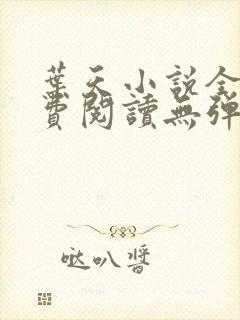 葉天小說全
費閱讀無彈
噠叭醬